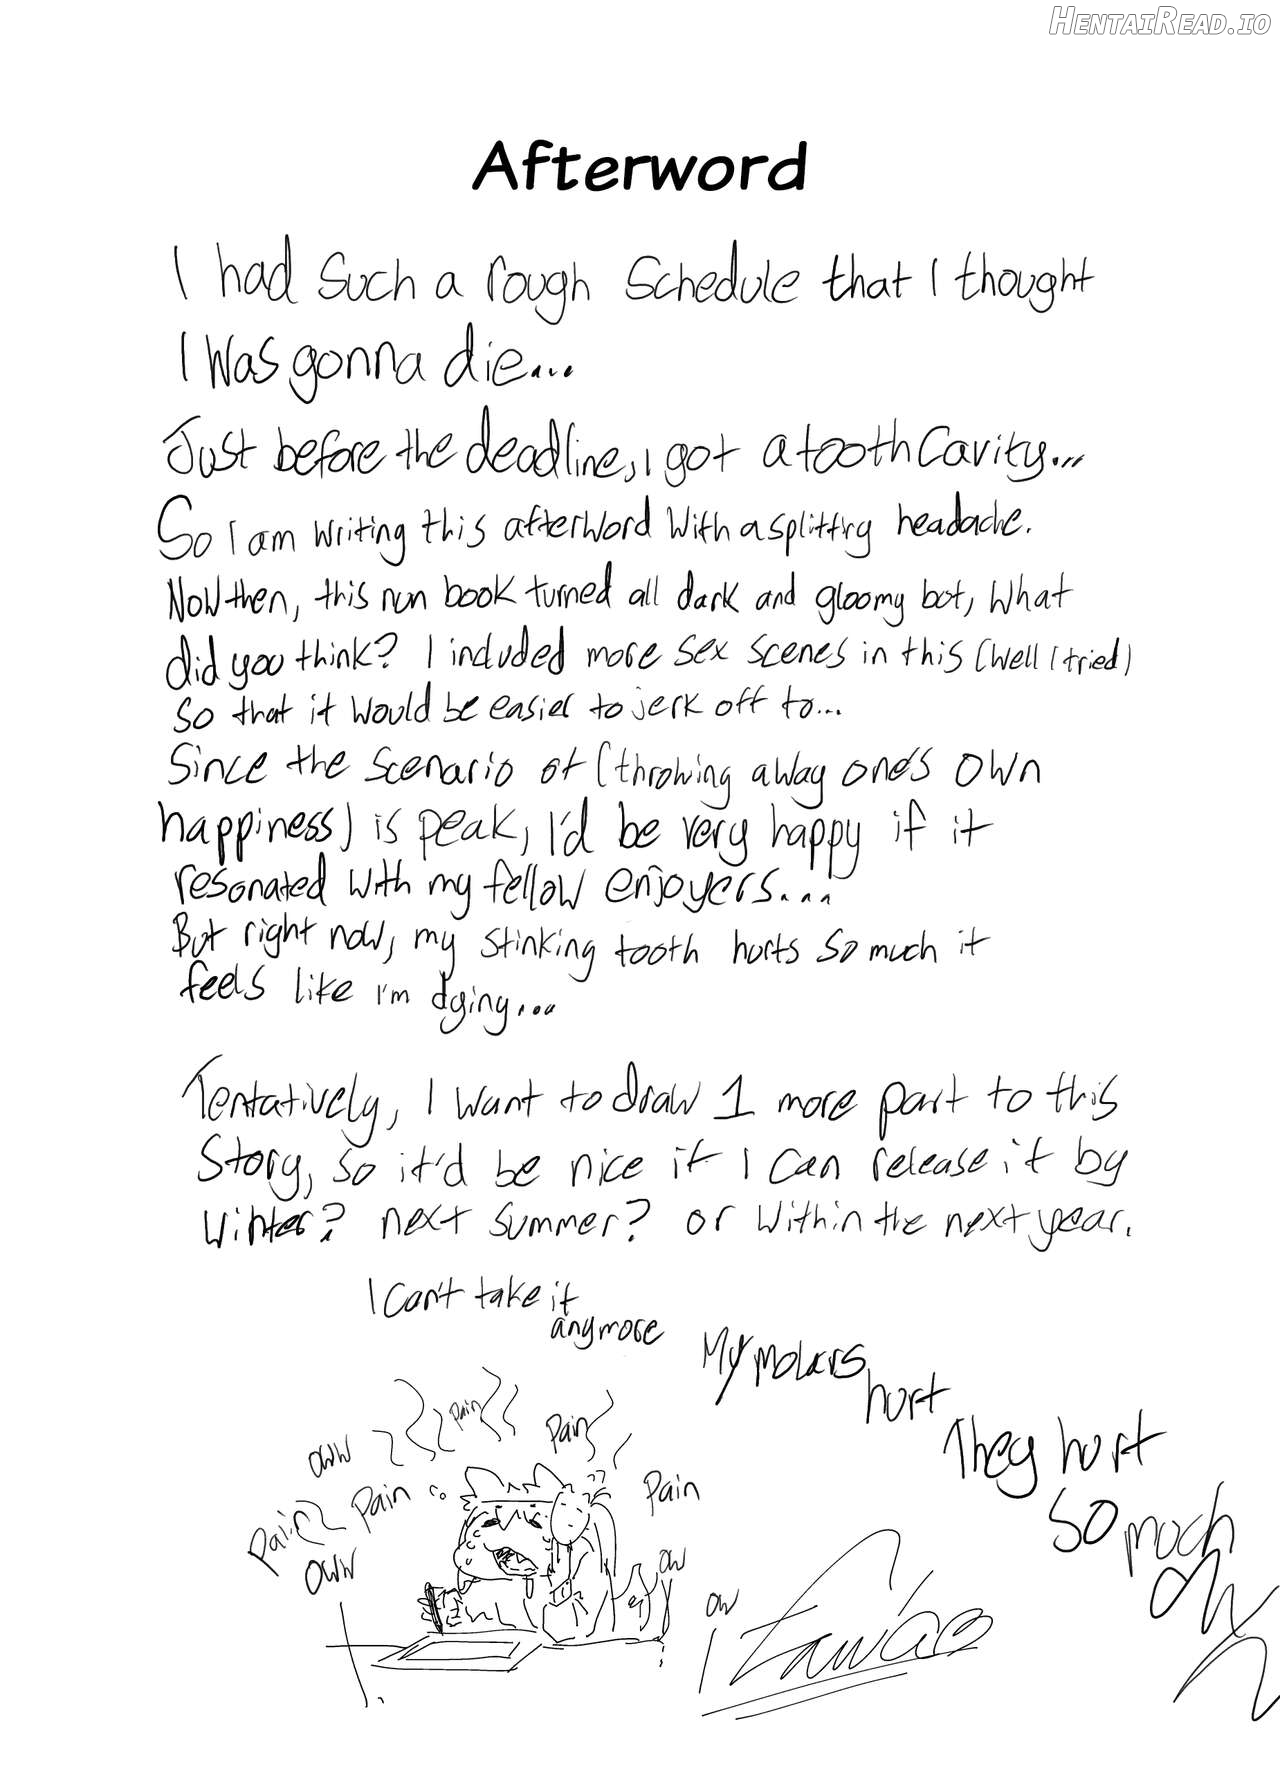 HentaiRead.io
Afterword
I had such a rough schedule that I thought
I was gonna die...
Just before the deadline, I got a tooth cavity...
So I am writing this afterword with a splitting headache.
Now then, this nun book turned all dark and gloomy but, what
did you think? I included more sex scenes in this (well I tried)
so that it would be easier to jerk off to...
Since the scenario of (throwing away one's own
happiness) is peak, I'd be very happy if it
resonated with my fellow enjoyers...
But right now, my stinking tooth hurts so much it
feels like I'm dying...
Tentatively, I want to draw 1 more part to this
story, so it'd be nice if I can release it by
winter? next summer? or within the next year.
I can't take it
anymore
My molars
hurt
They hurt
so much
oww
pain
pain
oww
pain
pain
pain
oww
ow
ow